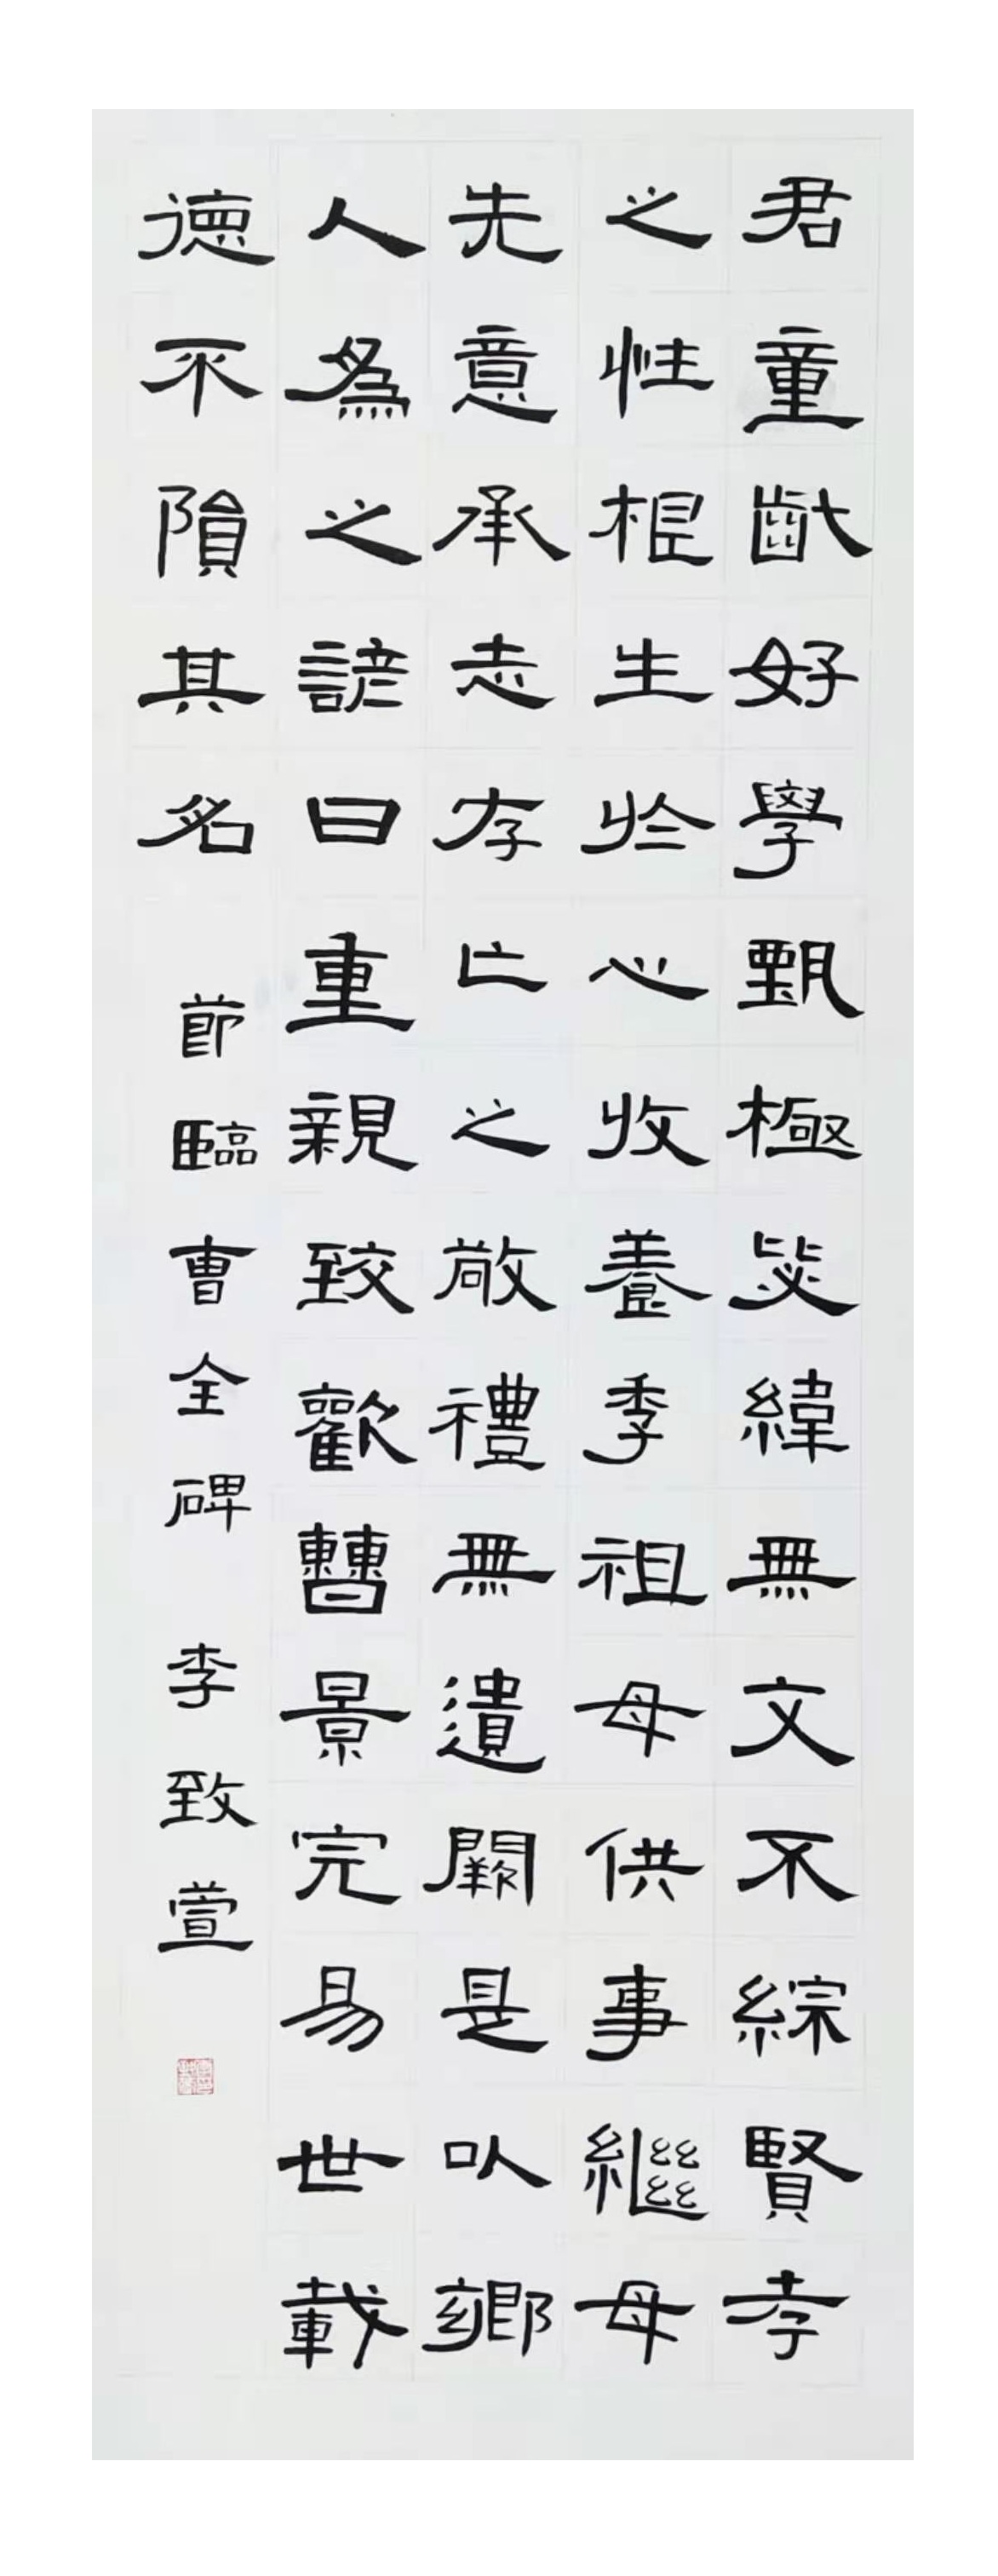 君童齔好學甄極毖緯無文不綜賢孝
之性根生於心收養季祖母供事繼母
先意承志存亡之敬禮無遺闕是以鄉
人為之諺曰重親致歡曹景完易世載
德不隕其名 節臨曹全碑 李致萱